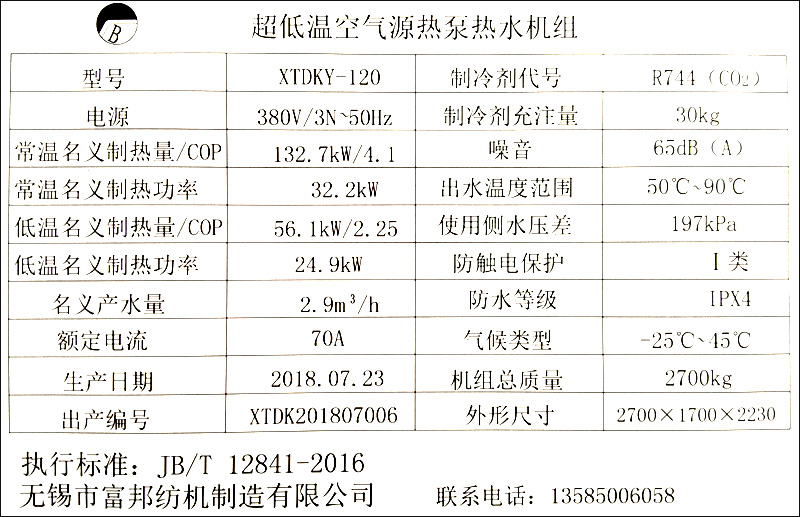 B
超低温空气源热泵热水机组
型号 XTDKY-120 制冷剂代号 R744 (CO₂)
电源 380V/3N~50Hz 制冷剂充注量 30kg
常温名义制热量/COP 132.7kW/4.1 噪音 65dB (A)
常温名义制热功率 32.2kW 出水温度范围 50℃~90℃
低温名义制热量/COP 56.1kW/2.25 使用侧水压差 197kPa
低温名义制热功率 24.9kW 防触电保护 I 类
名义产水量 2.9m³/h 防水等级 IPX4
额定电流 70A 气候类型 -25℃~45℃
生产日期 2018.07.23 机组总质量 2700kg
出产编号 XTDK201807006 外形尺寸 2700×1700×2230
执行标准: JB/T 12841-2016
无锡市富邦纺机制造有限公司 联系电话: 13585006058